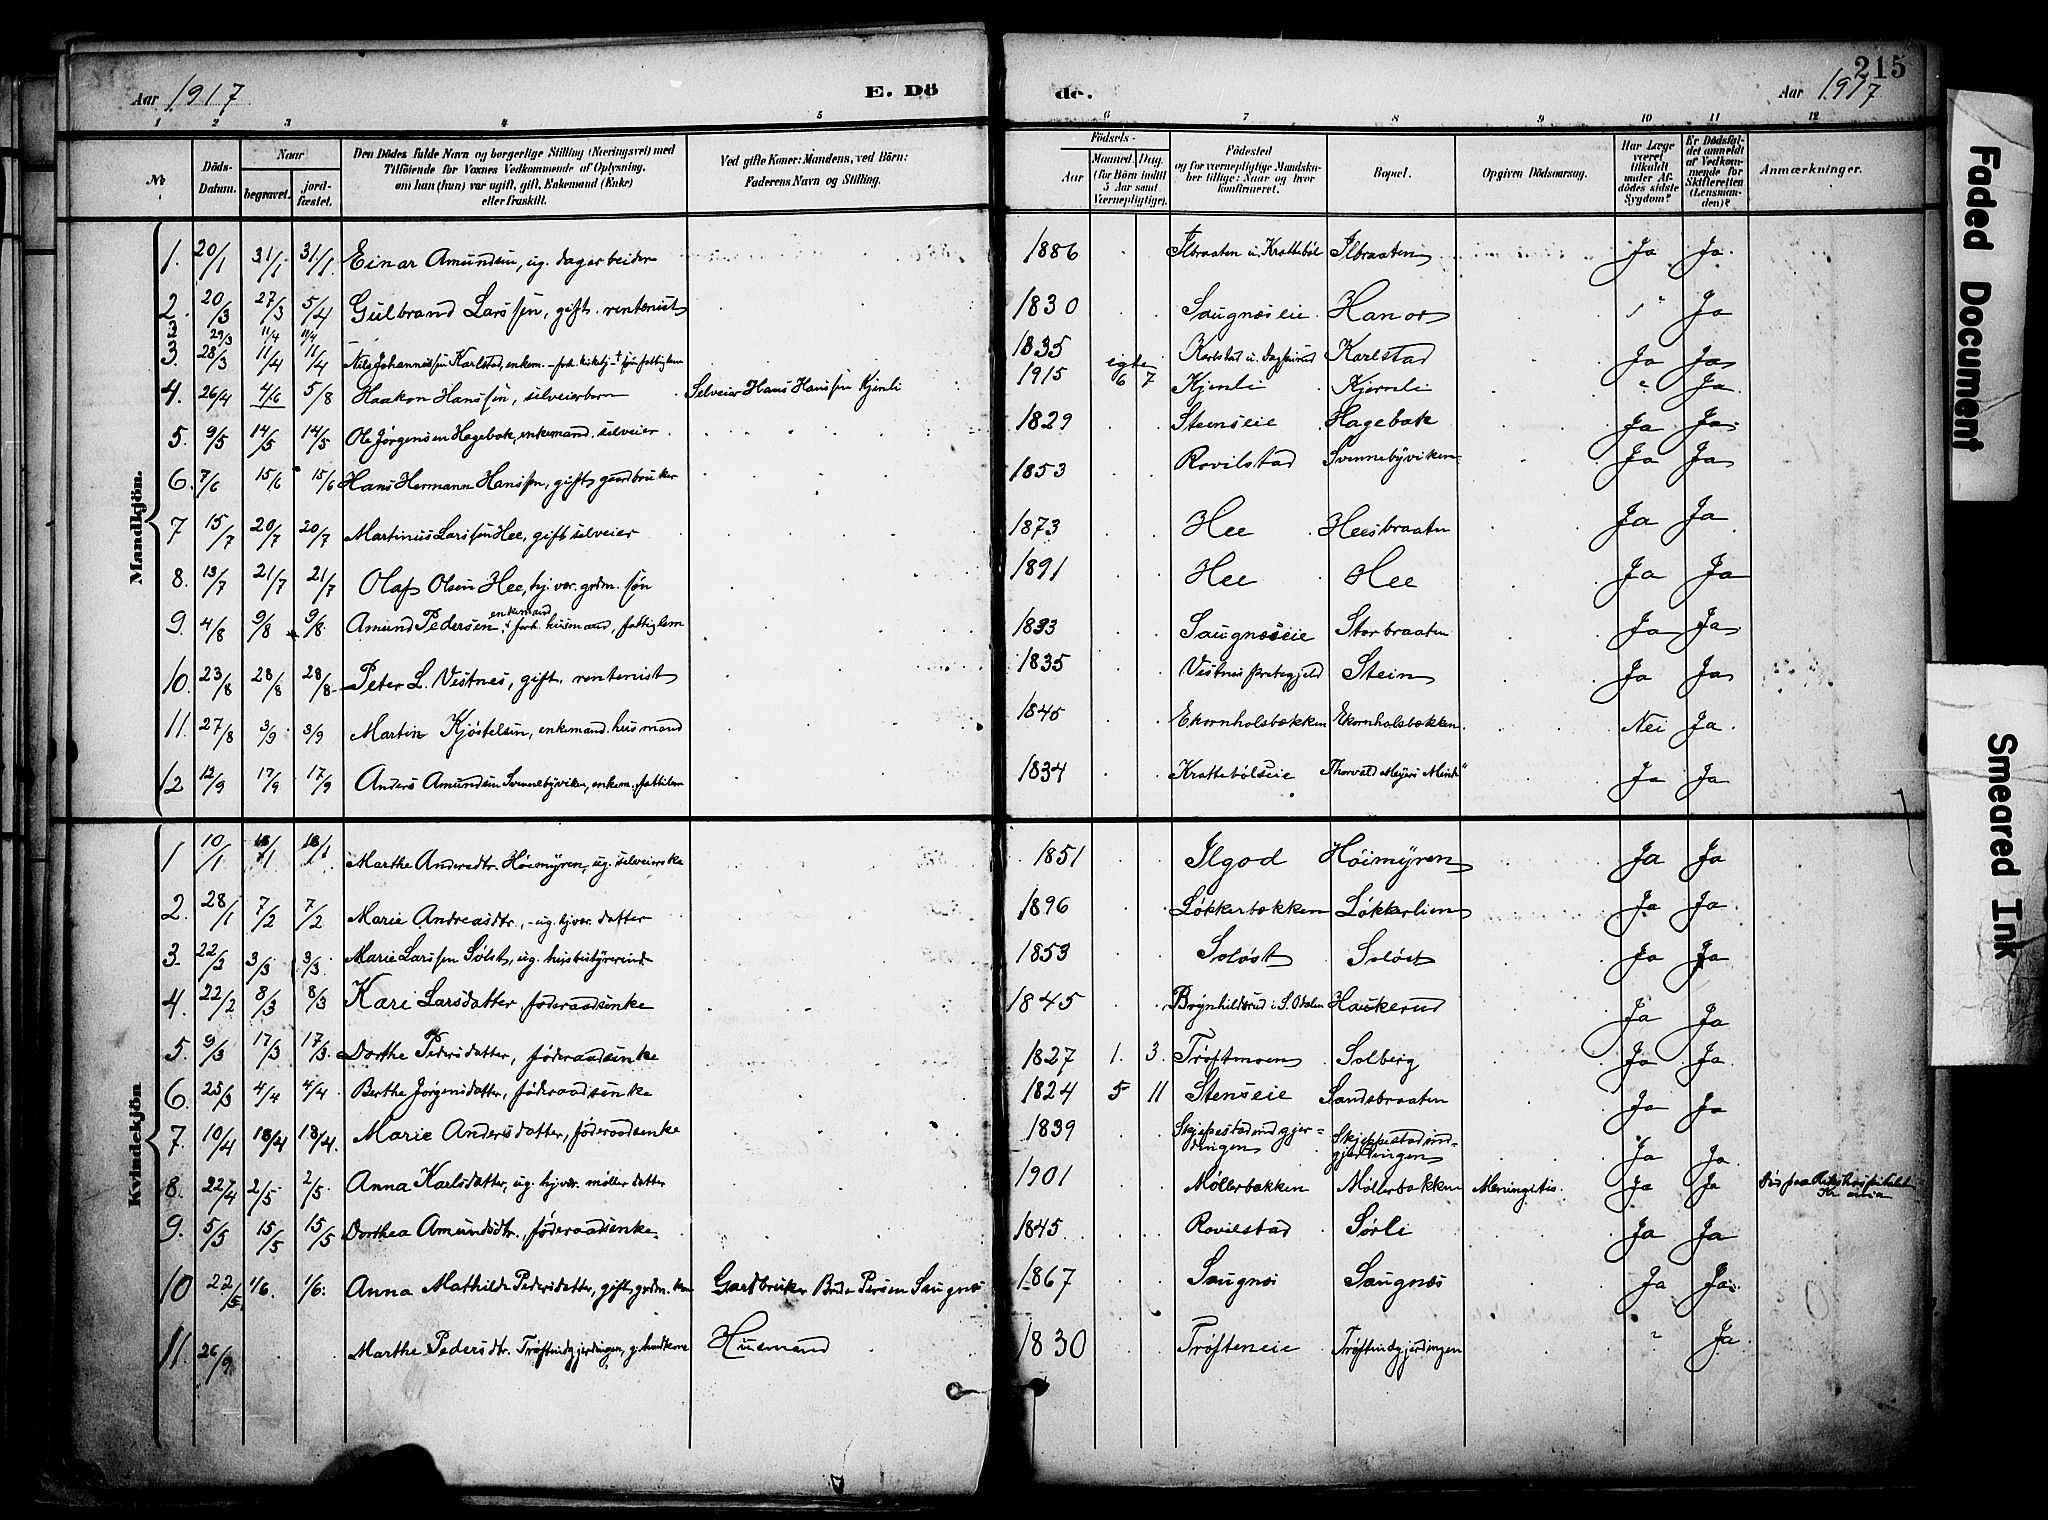 Aar 1917 E. Dö de. Aar 1917 215
1 2 3 4 5 6 7 8 9 10 11 12
№ Döds-Datum. Naar begravet. jordfæstet. Den Dödes fulde Navn og borgerlige Stilling (Næringsvei) med Tilföiende for Voxnes Vedkommende af Oplysning, om han (hun) var ugift, gift, Enkemand (Enke) eller fraskilt. Ved gifte Koner: Mandens, ved Börn: Faderens Navn og Stilling. Födsels- Aar Maaned. Dag. (for Börn indtil 5 Aar samt Værnepligtige). Födested og for værnepligtige Mandskaber tillige: Naar og hvor konfirmeret. Bopæl. Opgiven Dödsaarsag. Har Læge været tilkaldt under Afdödes sidste Sygdom? Er Dödsfaldet anmeldt af Vedkommende for Skifteretten (Lensmanden)? Anmærkninger.
Mandkjön.
1. 20/1 31/1 31/1 Einar Amundsen, ug. dagarbeider 1886 Ilbraaten u. Krattebøl Ilbraaten Ja Ja
2. 20/3 27/3 5/4 Gulbrand Larssen, gift. rentenist 1830 Saugnæseie Hanor " Ja
29/3 11/4 11/4
3. 28/3 11/4 11/4 Nils Johannessen Karlstad, enkem. 1835 Karlstad u. Karlstad Ja Ja
4. 26/4 4/6 5/8 Haakon Hanssen, selveierbarn Selveier Hans Hanssen Kjenli 1915 6 7 Kjenli Kjernli " Ja
5. 9/5 14/5 14/5 Ole Jørgensen Hagebak, enkemand, selveier 1829 Stenseie Hagebak Ja Ja
6. 7/6 15/6 15/6 Hans Hermann Hanssen, gift gaardbruker 1853 Rovilstad Svennebyviken Ja Ja
7 15/7 20/7 20/7 Martinius Larssen Hee, gift selveier 1873 Hee Heesbraaten Ja Ja
8. 13/7 21/7 21/7 Olaf Olsen Hee, hj.vær. grdm. søn 1891 Hee Hee Ja Ja
9. 4/8 9/8 9/8 Amund Pedersen, enkemand, forh. husmand, fattiglem 1833 Saugnæseie Storbraaten Ja Ja
10. 23/8 28/8 28/8 Peter L. Vestnes, gift, rentenist 1835 Vestnes prestegjeld Stein Ja Ja
11. 27/8 3/9 3/9 Martin Kjøstelsen, enkemand. husmand 1845 Ekornholsbækken Ekornholsbækken Nei Ja
12 12/9 17/9 17/9 Anders Amundsen Svennebyviken, enkem., fattilem 1834 Krattebølseie Thorvald Meyers Minde" Ja Ja
Kvindekjön
1 10/1 18/1 18/1 Marthe Andersdtr. Høimyren, ug. selveierske 1851 Ilgod Høimyren Ja Ja
2. 28/1 7/2 7/2 Marie Andreasdtr., ug. hj.vær. datter 1896 Løkkerbækken Løkkerlien Ja Ja
3. 22/2 3/3 3/3 Marie Larssen Søløst, ug. husbestyrerinde 1853 Soløst Soløst Ja Ja
4. 22/2 8/3 8/3 Kari Larsdatter, føderaadsenke 1845 Brynhildsrud i S. Odalen Haukerud Ja Ja
5. 9/3 17/3 17/3. Dorthe Pedersdatter, føderaadsenke 1827 1. 3. Trøftmoen Solberg Ja Ja
6. 25/3 4/4 4/4 Berthe Jørgensdatter, føderaadsenke 1824 5 11 Stenseie Sandsbraaten Ja Ja
7. 10/4 18/4 18/4. Marie Andersdatter, føderaadsenke 1839 Skjeppestadindgjerdingen Skjeppestadindgjerdingen Ja Ja
8. 22/4 2/5 2/5. Anna Karlsdatter, ug. hj.vær. møller datter 1901 Møllerbækken Møllerbakken Meningitis. Ja Ja Døs paa Rikshospitalet Kr.ania
9. 5/5 15/5 15/5 Dorthea Amundsdtr., føderaadsenke. 1845 Rovilstad Sørli Ja Ja
10 22/5 1/6. 1/6. Anna Mathilde Pedersdatter, gift, grdm. kone Gardbruker Persen Saugnæs 1867 Saugnæs Saugnæs Ja Ja
11. 26/9 Marthe Pedersdtr. Trøftindgjerdingen, g. husmandkone Husmand 1830 Trøfteneie Trøftindgjerdingen " Ja
Faded Document
Smeared Ink